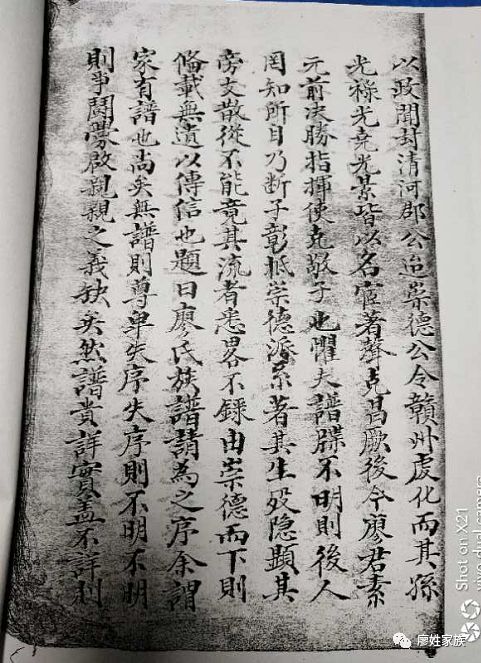 以政聞封清河郡公迨崇德公令贛州虔化而其孫
光祿光堯光崇皆以名宦著聲克昌厥後今廖君素
元前决勝指揮使克敬子也懼夫譜牒不明則後人
罔知所自乃断子彰抵崇德派系著其生殁隐顕其
旁支散従不能竟其流者悉畧不録由崇德而下則
俻載無遺以傳信也題曰廖氏族譜請為之序余謂
家有譜也尚矣無譜則尊卑失序失序則不明不明
則争鬪𤼵啟親親之義缺矣然譜貴詳實盖不詳則
Shot on X21
vivo dual camera
廖姓家族